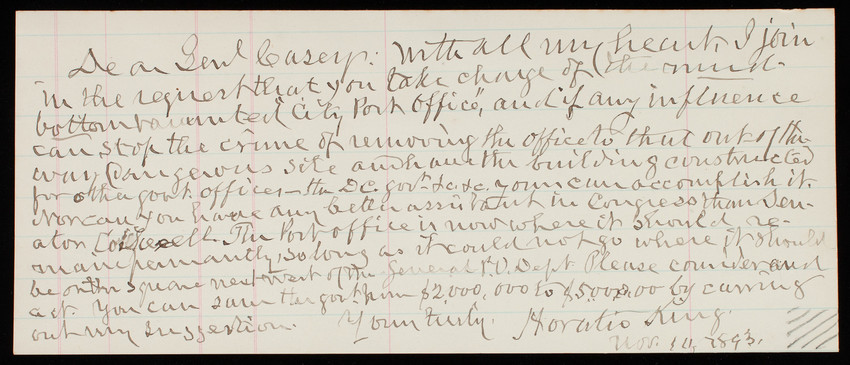 Dear Genl Casey: With all my heart I join
in the request that you take charge of (the mud-
bottom haunted "City Post Office", and if any influence
can stop the crime of removing the office to that out of the
way dangerous site and have the building constructed
for other govt. offices — the D.C. govt. &c &c. you can accomplish it.
Nor can you have any better assistant in Congress than Sen-
ator Cockrell. The Post office is now where it should re-
main permantly, so long as it could not go where it should
be on the square next west of the General P.O. Dept. Please consider and
act. You can save the govt. from $2,000,000 to $5,000,000 by carring
out my suggestion. Yours truly. Horatio King.
Nov. 10, 1893.